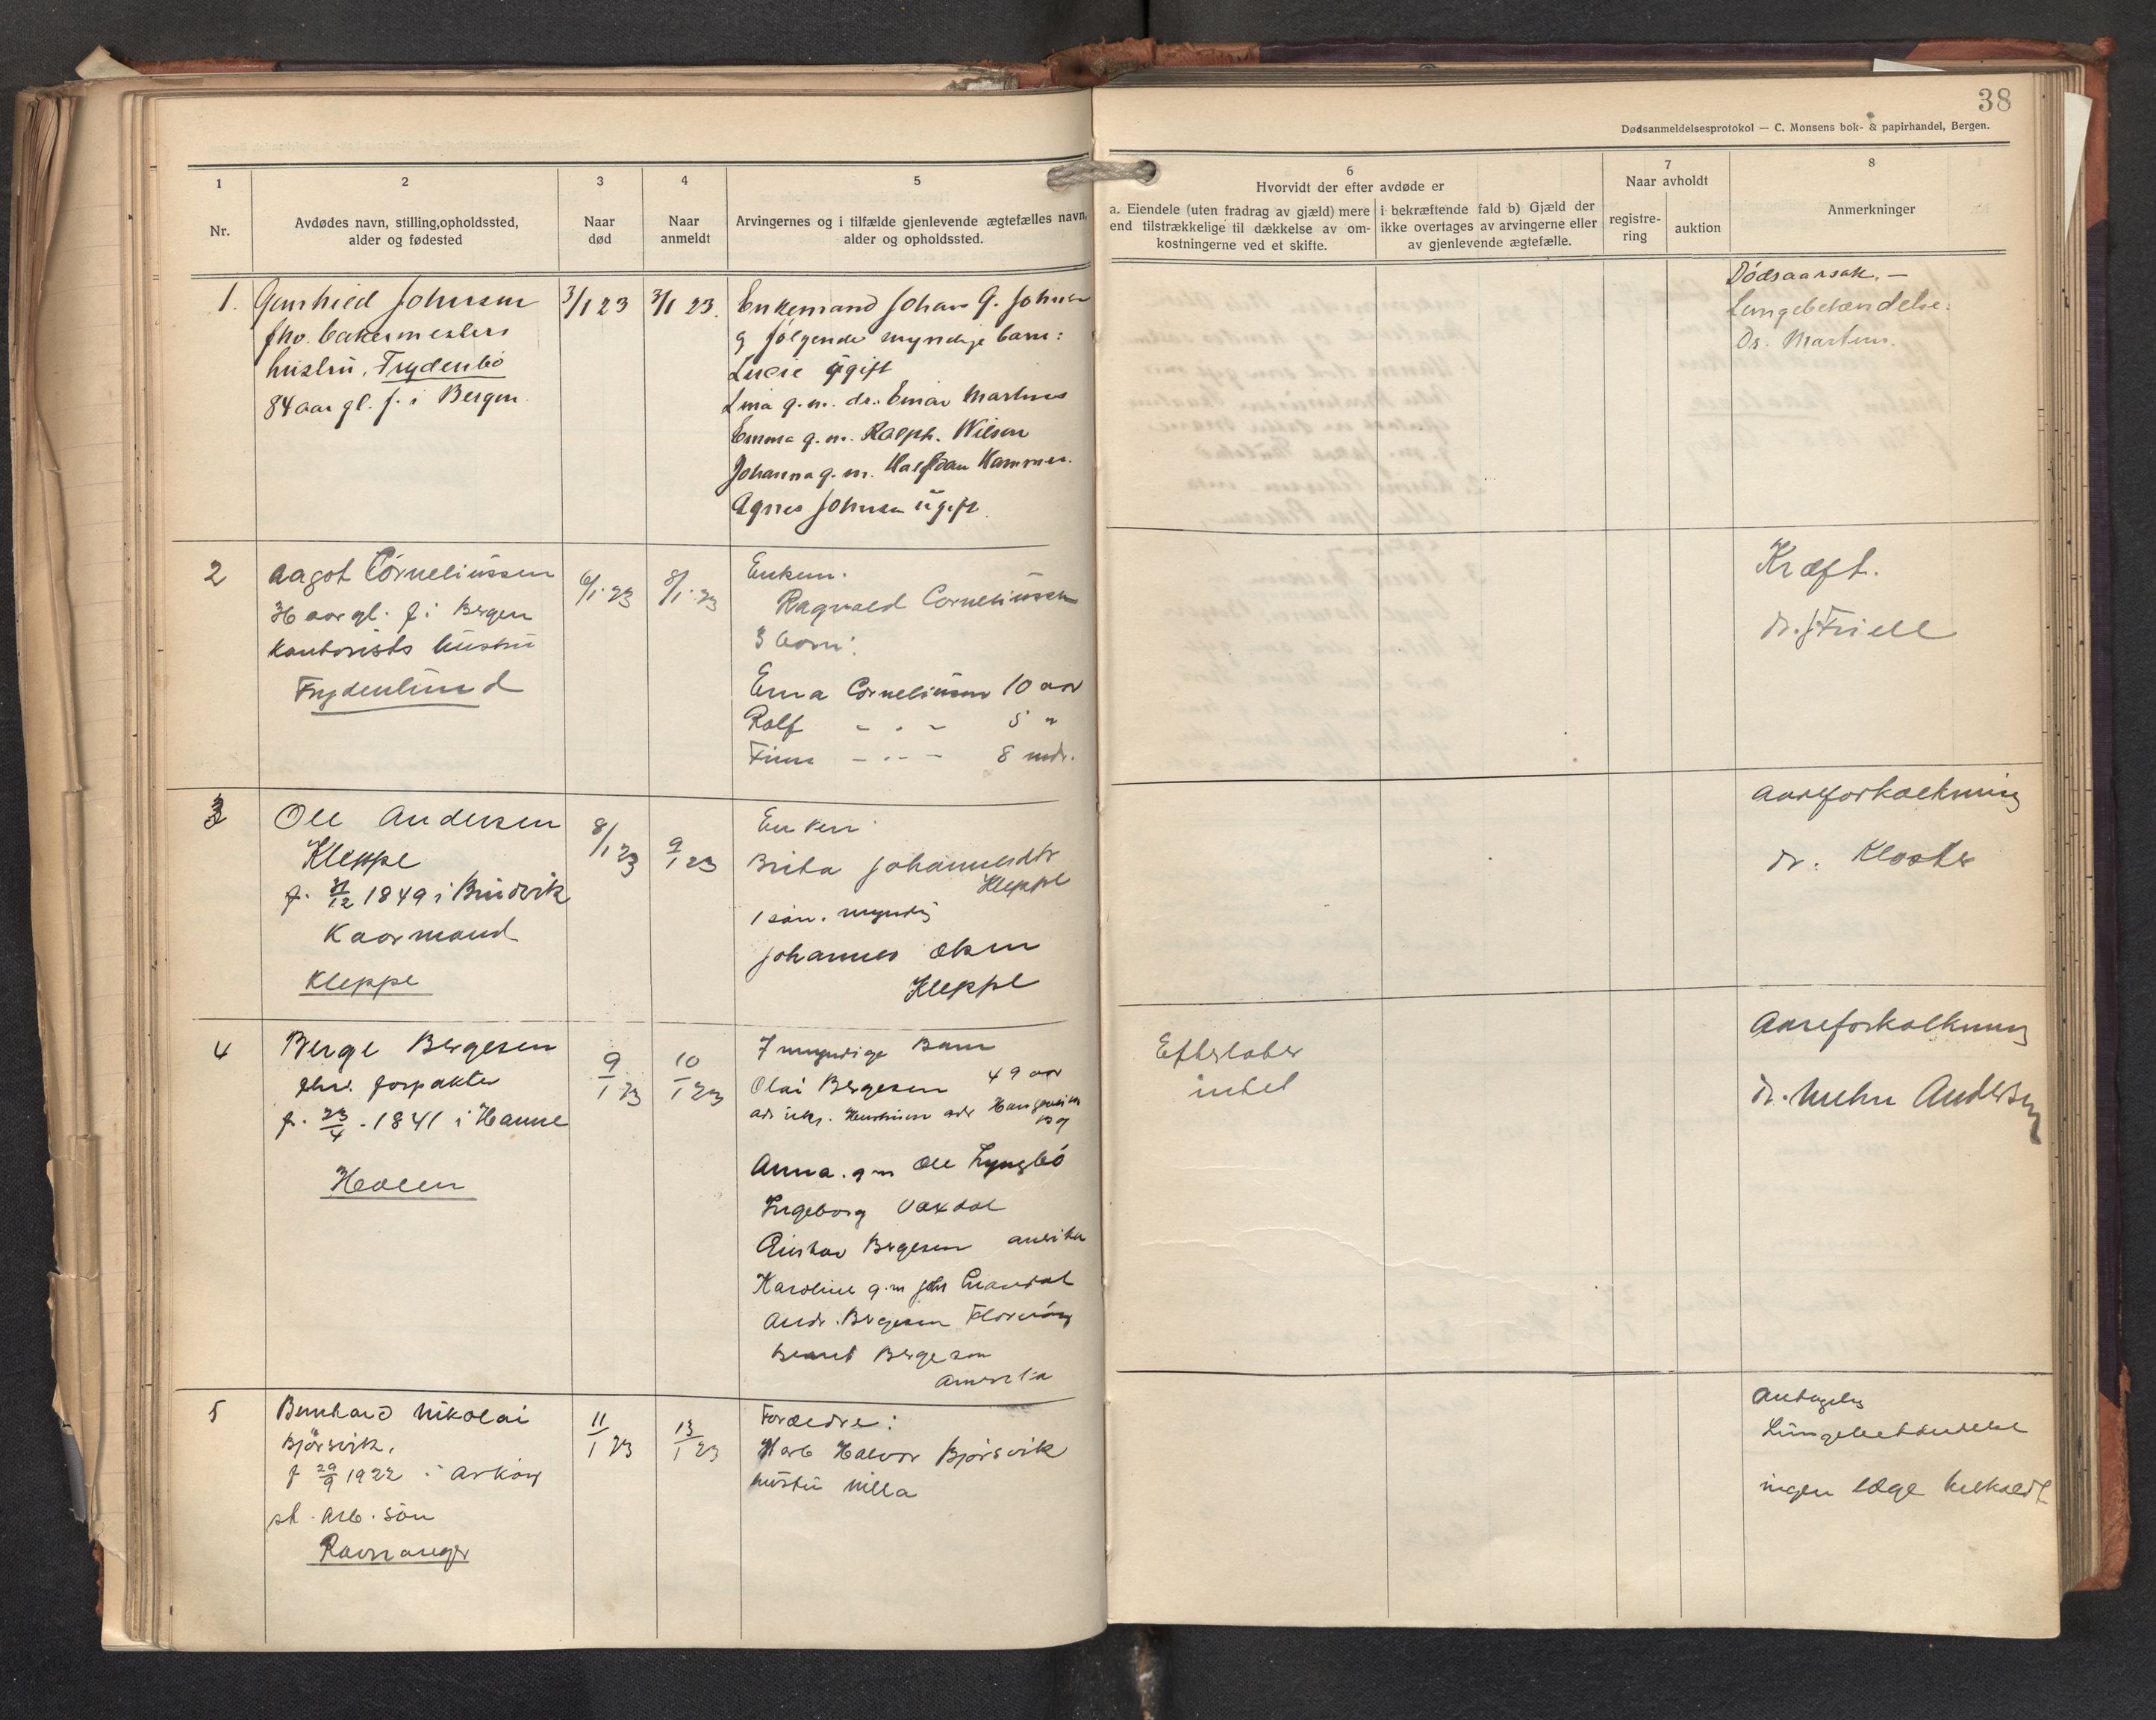 38
Dødsanmeldelsesprotokol — C. Monsens bok- & papirhandel, Bergen.
1
Nr.
2
Avdødes navn, stilling, opholdssted,
alder og fødested
3
Naar
død
4
Naar
anmeldt
5
Arvingernes og i tilfælde gjenlevende ægtefælles navn,
alder og opholdssted.
6
Hvorvidt der efter avdøde er
a. Eiendele (uten fradrag av gjæld) mere
end tilstrækkelige til dækkelse av om-
kostningerne ved et skifte.
i bekræftende fald b) Gjæld der
ikke overtages av arvingerne eller
av gjenlevende ægtefælle.
7
Naar avholdt
registre-
ring
auktion
8
Anmerkninger
1.
Johnsen
fhv. bakermesters
hustru, Frydenbö
84 aar gl. f. i Bergen
3/1 23
3/1 23.
Enkemand Johan G. Johnsen
g følgende myndige barn:
Lucie ugift
Lina g.m. dr. Einar Martens
Emma g.m. Ralph. Wilson
Johanna g.m. Halfdan Hammer.
Agnes Johnsen ugift.
Dödsaarsak. —
Lungebetændelse.
Dr. Martens.
2
Aagot Corneliussen
aar gl. f. i Bergen
kontorists hustru
Frydenlund
6/1 23
8/1 23
Enkem.
Ragnvald Corneliussen
3 barn:
Erna Corneliussen 10 aar
Rolf - . - 5 "
Finn - .. - 8 mdr.
Kræft.
dr. J Friele
3
Ole Andersen
Kleppe
f. 31/12 1849 i Bruvik
Kaarmand
Kleppe
8/1 23
9/1 23
Enken
Brita Johannesdtr
Kleppe
1 sön. myndig
Johannes Olsen
Kleppe
Aareforkalkning
dr. Kloster
4
Berge Bergesen
fhv. forpakter
f. 23/4 - 1841 i Hamre
Holen
9/1 23
10/1 23
7 myndige Barn
Olai Bergesen 49 aar
Anna. g m Ole Lyngbö
Ingeborg Vaxdal
Gustav Bergesen amerika
Karoline g.m Johs
Andr. Bergesen Florvåg
Bernt Bergesen
Amerika
Efterlater
intet
Aareforkalkning
dr. Mohn Andersen
5
Bernhard Nikolai
Bjørsvik.
f 29/9 1922 i Askøy
st. arb. sön
Ravnanger
11/1 23
13/1 23
Forældre:
Halvor Bjørsvik
hustru Milla
Antagelig
Lungebetændelse
ingen læge tilkaldt